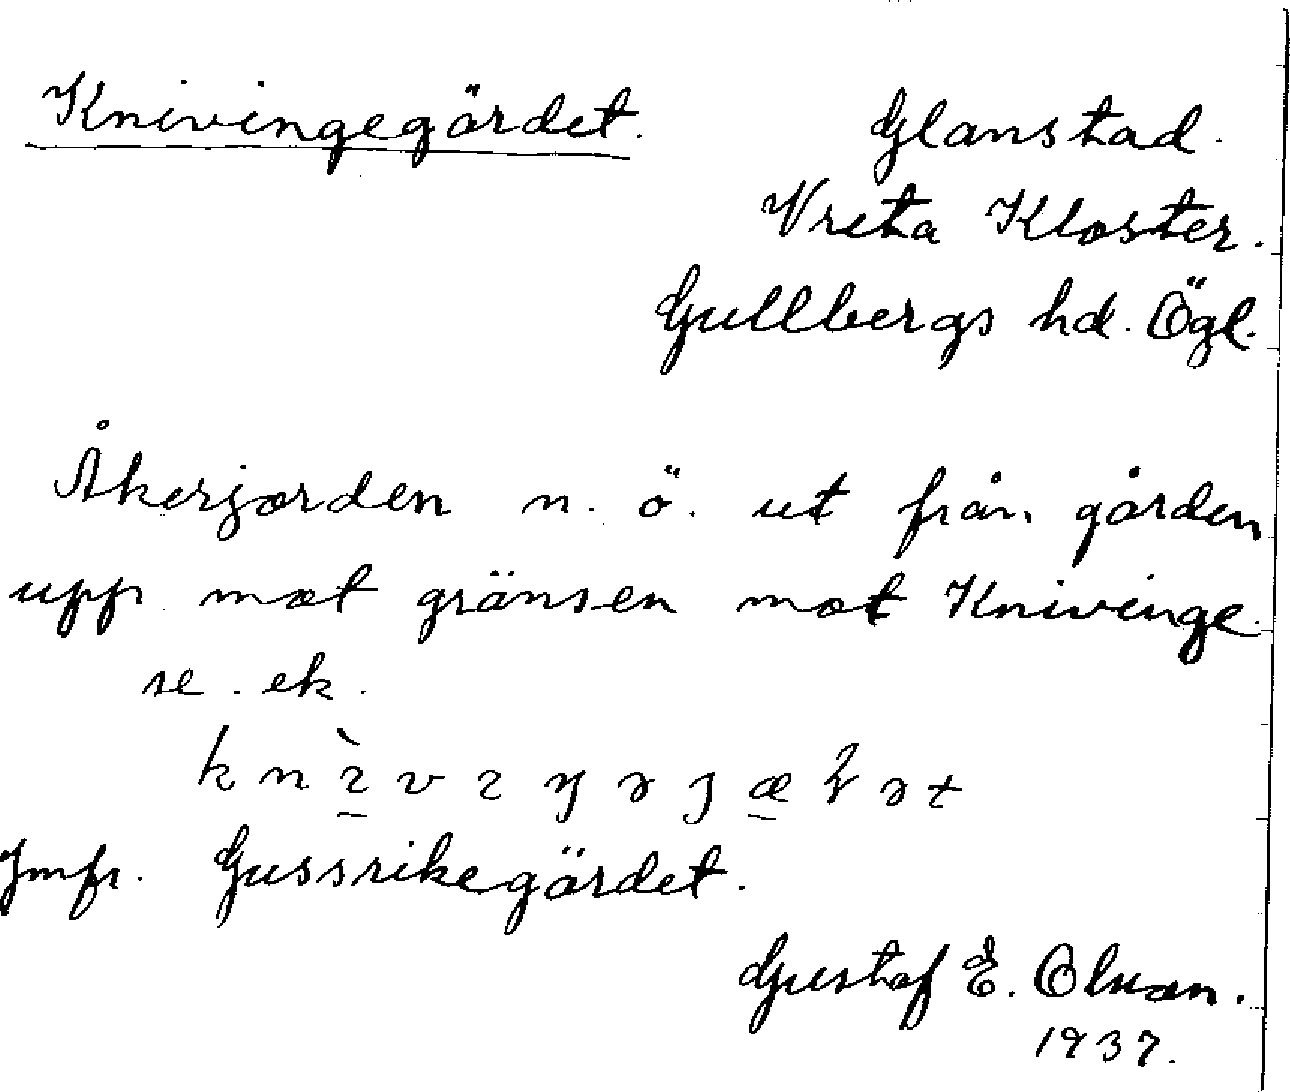 Knivingegärdet. Glanstad.
Vreta Kloster.
Gullbergs hd. Ögl.
Åkerjorden n. ö. ut från gården
upp mot gränsen mot Knivinge.
se. ek.
Jmfr. Gussrikegärdet.
Gustaf E. Olsson.
1937.